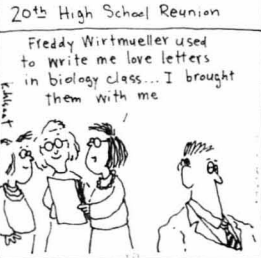 20th High School Reunion
Freddy Wirtmueller used
to write me love letters
in biology class... I brought
them with me